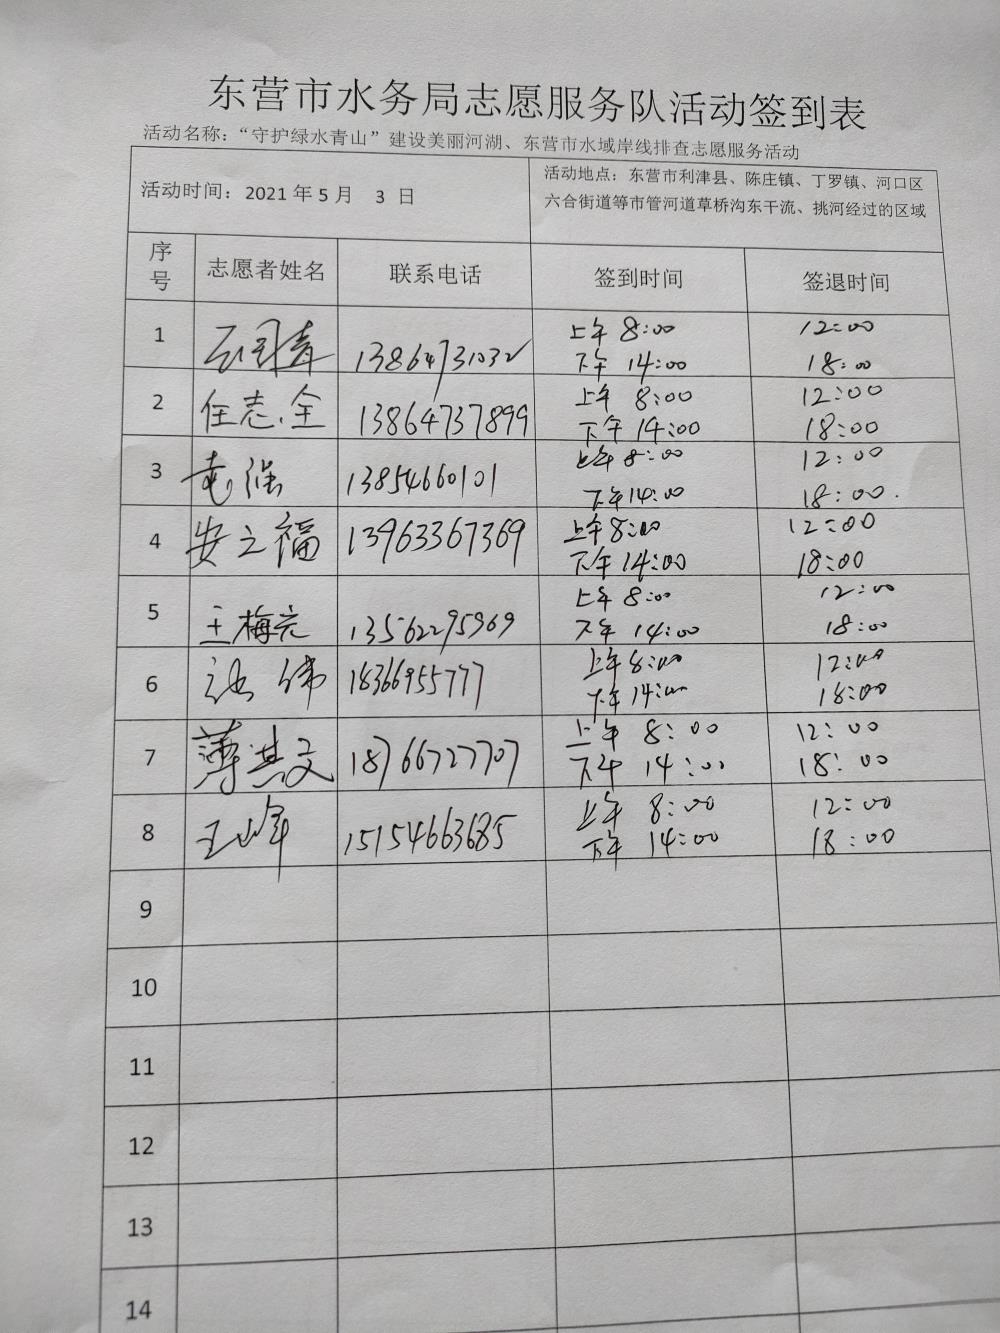 东营市水务局志愿服务队活动签到表
活动名称：“守护绿水青山”建设美丽河湖、东营市水域岸线排查志愿服务活动
活动时间：2021年5月 3 日
活动地点：东营市利津县、陈庄镇、丁罗镇、河口区
六合街道等市管河道草桥沟东干流、挑河经过的区域
序号 志愿者姓名 联系电话 签到时间 签退时间
上午 8:00 12:00
1 13864731032
下午 14:00 18:00
上午 8:00 12:00
2 任志全 13864737899
下午 14:00 18:00
上午 8:00 12:00
3 13854660101
下午 14:00 18:00.
上午 8:00 12:00
4 安之福 13963367369
下午 14:00 18:00
上午 8:00 12:00
5 王梅亮 13562295969
下午 14:00 18:00
上午 8:00 12:00
6 伟 18366955777
下午 14:00 18:00
上午 8:00 12:00
7 薄其文 18766727707
下午 14:00 18:00
上午 8:00 12:00
8 王峰 15154663685
下午 14:00 18:00
9
10
11
12
13
14